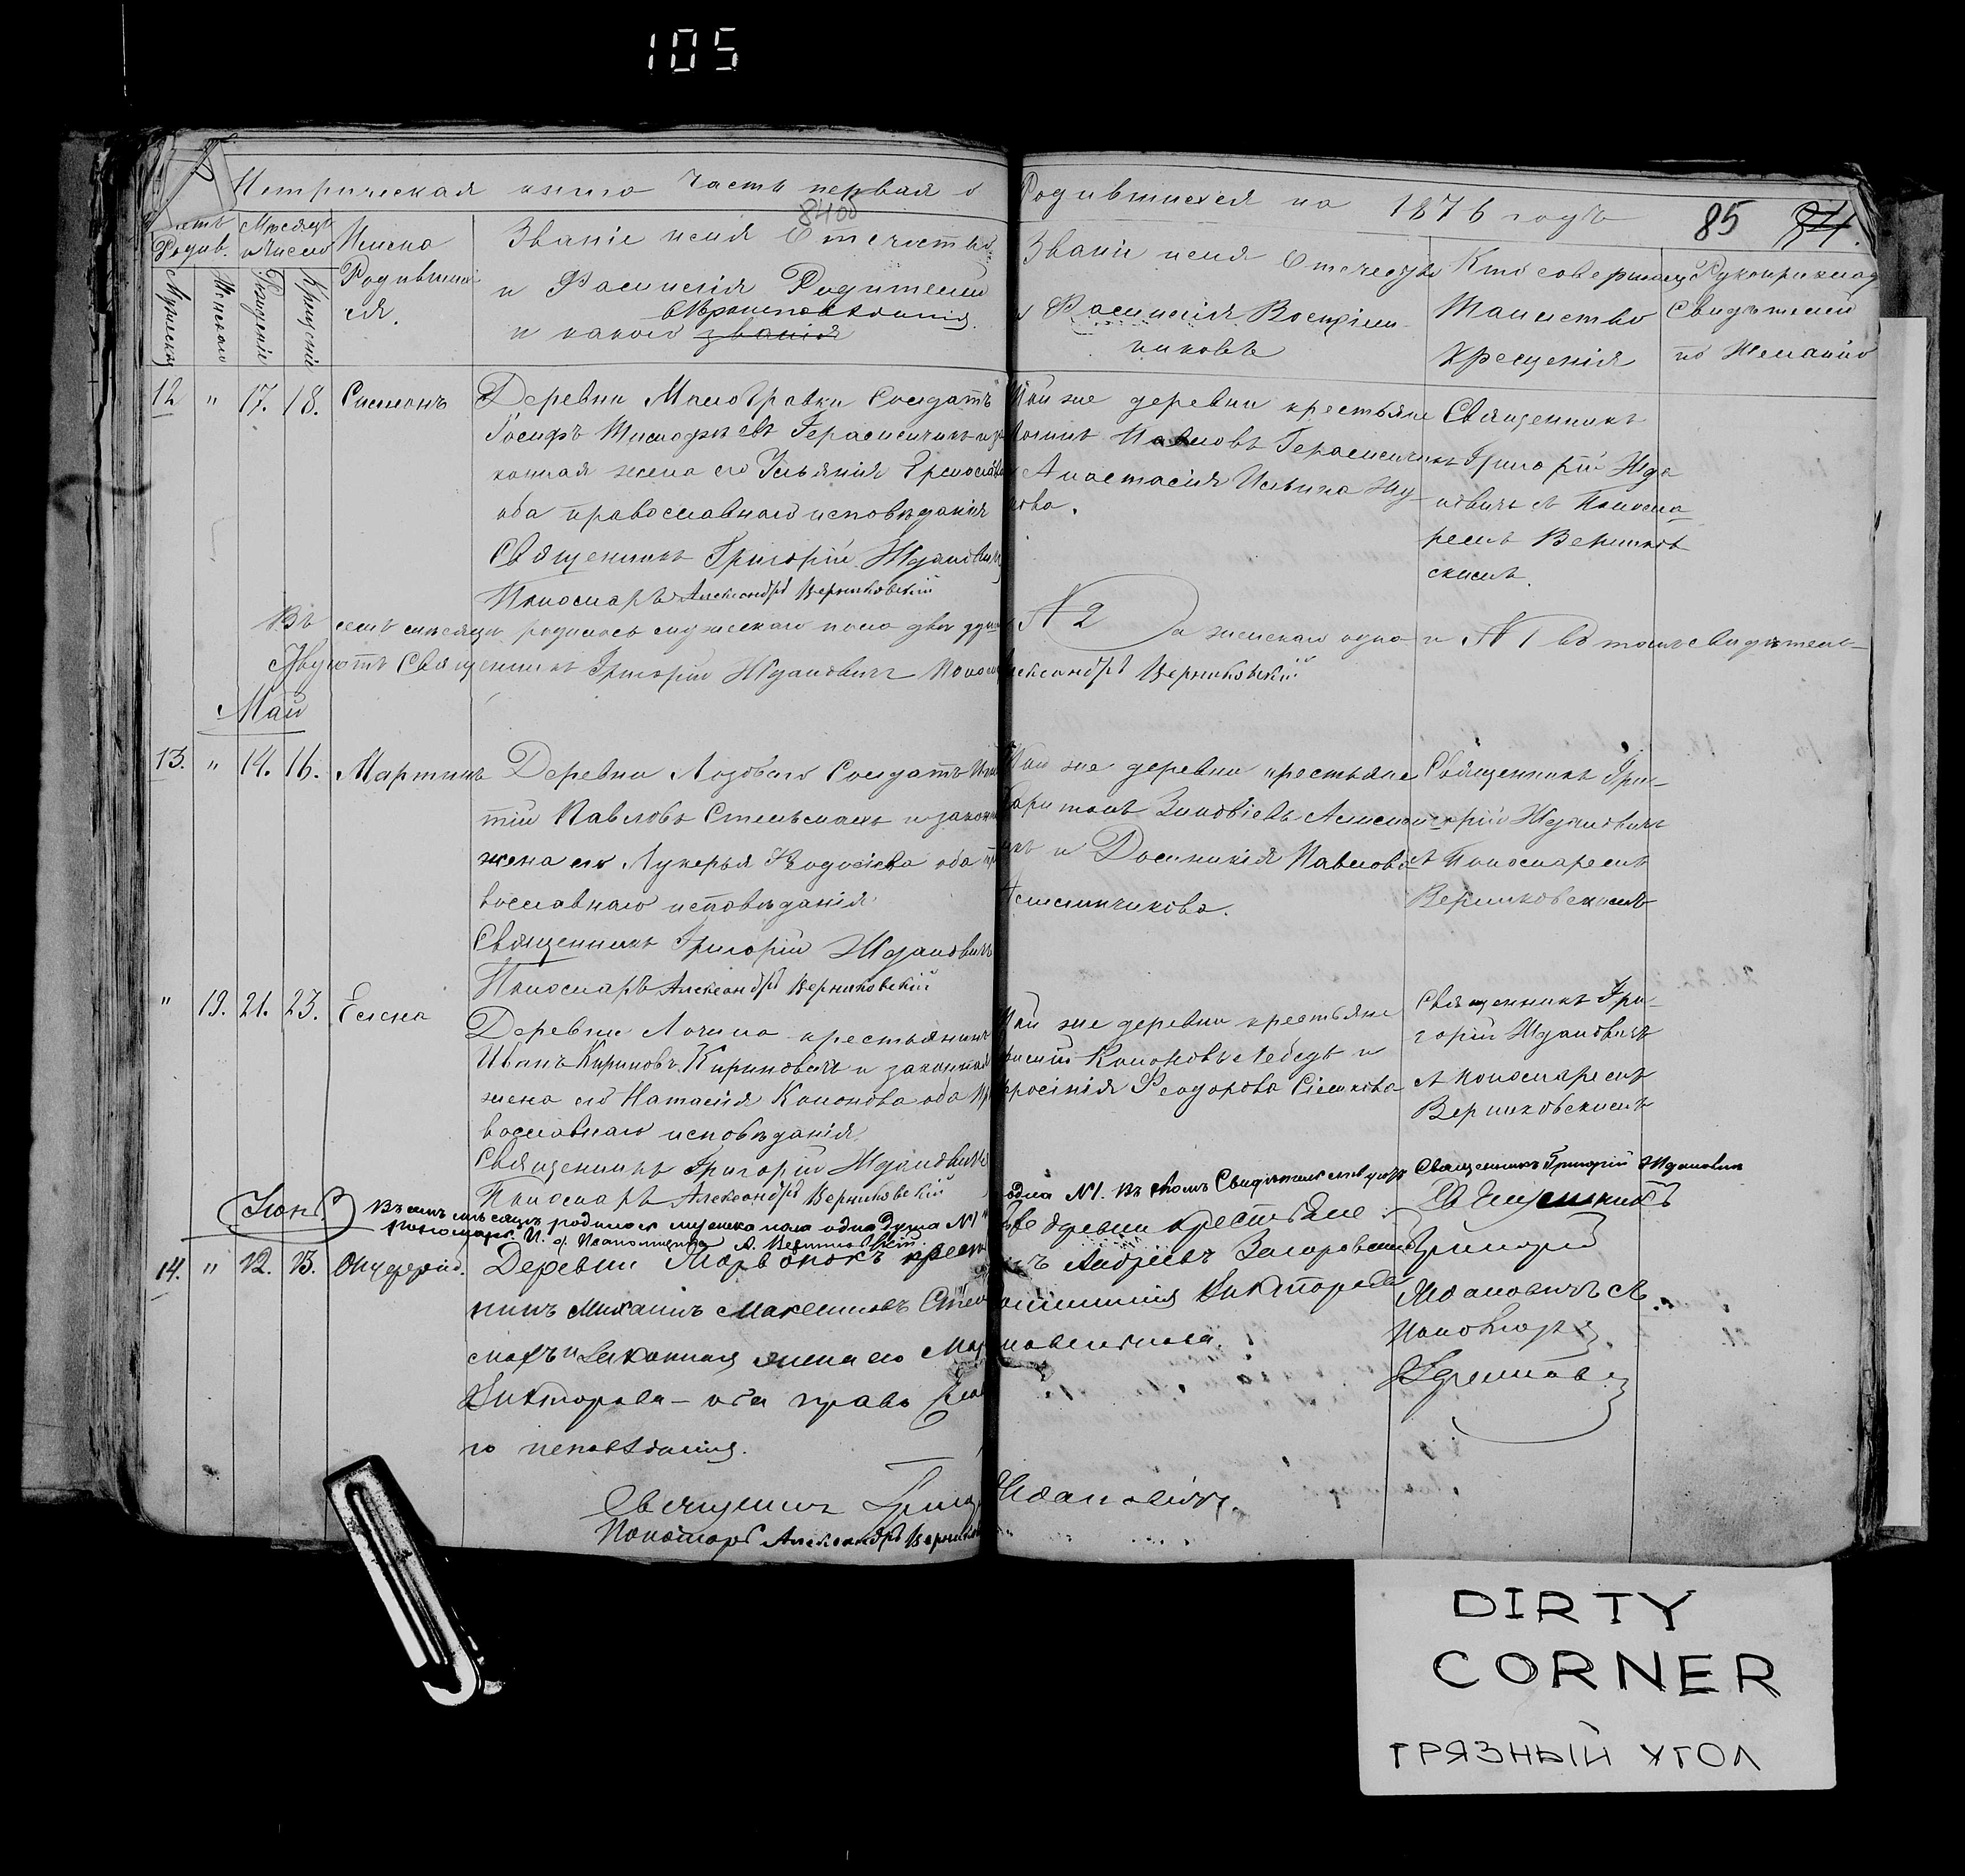 105
Метрическая книга Часть первая о Родившихся на 1876 годъ
840б
85 84.
Мѣсяцъ и Число
Родив.
Мужеска
Женскаго
Рожденіе
Крещеніе
Имена Родившихся.
Званіе имя Отечество
и Фамилія Родителей
и какого званія вѣроисповѣданія
Званіе имя Отечество
и Фамилія Воспріемниковъ
Кто совершалъ
Таинство
Крещенія
Рукоприклад
Свидѣтелей
по Желанію
12 " 17. 18. Симеонъ
Деревни Солдатъ
Іосифъ Герасимчикъ и за
конная жена его Ульянія
оба православнаго исповѣданія
Священникъ Григорій Ждановичъ
Пономарь Александръ Верниковскій
той же деревни крестьяне
Павловъ Герасимчикъ
и Анастасія Ильина
Священникъ
Григорій Жда
новичъ съ Понома
ремъ Верников
скимъ.
Въ семъ мѣсяцѣ родилось мужескаго пола двѣ души № 2 а женскаго одна и № 1 въ томъ свидѣтель-
ствуютъ Священникъ Григорій Ждановичъ Пономарь Александръ Верниковскій
Май
13. " 14. 16. Мартинъ
Деревни Солдатъ
тій Павловъ Стельмахъ и закон
жена его Лукерья Ѳеодосіева оба пра
вославнаго исповѣданія
Священникъ Григорій Ждановичъ
Пономарь Александръ Верниковскій
той же деревни крестьяне
Харитонъ Зиновіевъ
и Домникія Павлова
Священникъ Гри-
горій Ждановичъ
съ Пономаремъ
Верниковскимъ
" 19. 21. 23. Елена
Деревни Локица крестьянинъ
Иванъ Кириковъ Кириковичъ и законная
жена его Наталія Кононова оба пра
вославнаго исповѣданія
Священникъ Григорій Ждановичъ
Пономарь Александръ Верниковскій
той же деревни крестьяне
Кононовъ Лебедь и
Феодорова
Священникъ Гри-
горій Ждановичъ
съ Пономаремъ
Верниковскимъ
Въ семъ мѣсяцѣ родилось мужеска пола одна душа № 1 одна № 1. Въ томъ Свидѣтельствуютъ Священникъ Григорій Ждановичъ
А. Верниковскій
Іюнь
14. " 12. 13. Онуфрій.
Деревни крестья
нинъ Михаилъ Максимовъ Стель
махъ и законная жена его
Викторова – оба право сла
го исповѣданія.
Священникъ Григ Ждановичъ.
Пономарь Александръ Верников
же деревни крестьяне
Андреевъ Загоровскій
Викторова
Священникъ
Григорій
Ждановичъ съ
Пономарь
DIRTY
CORNER
ГРЯЗНЫЙ УГОЛ